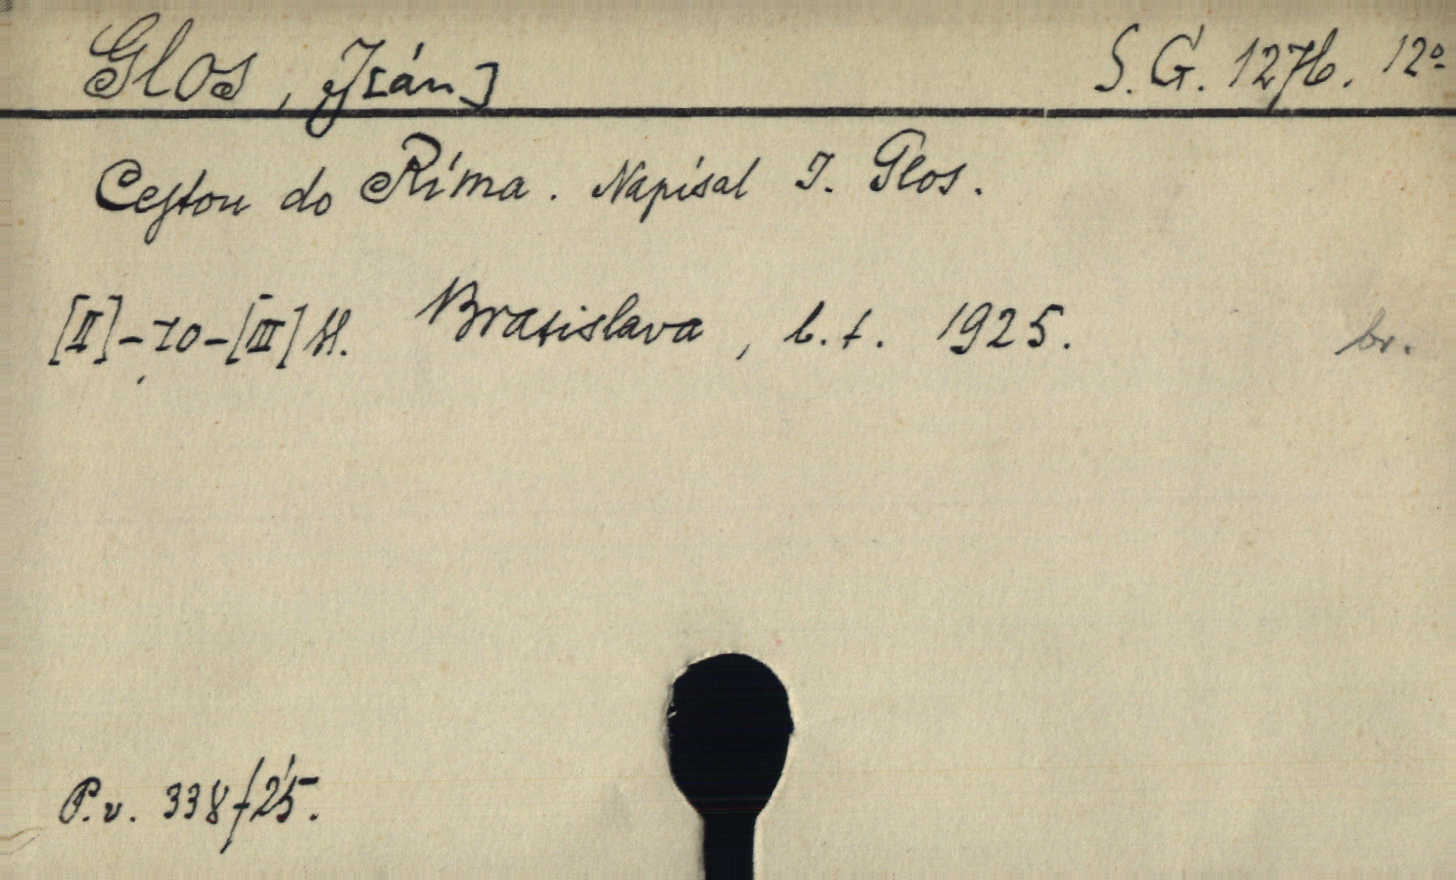 Glos, J[án] S.G. 1276. 12º
Cestou do Ríma. Napísal I. Glos.
[II]-70-[III] st. Bratislava, b.t. 1925. br.
P.v. 338/25.